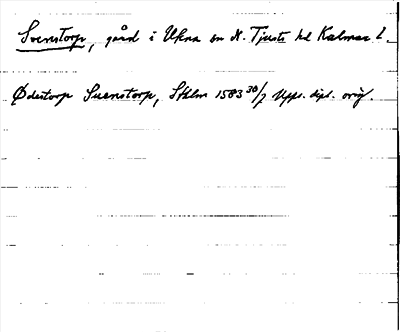 Svenstorp, gård i Ukna sn N. Tjusts hd Kalmar l.
Ødestorp Suenstorp, Sthlm 1583 30/7 Upps. dipl. orig.